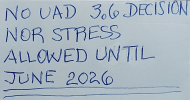 NO UAD 3.6 DECISION
NOR STRESS
ALLOWED UNTIL
JUNE 2026